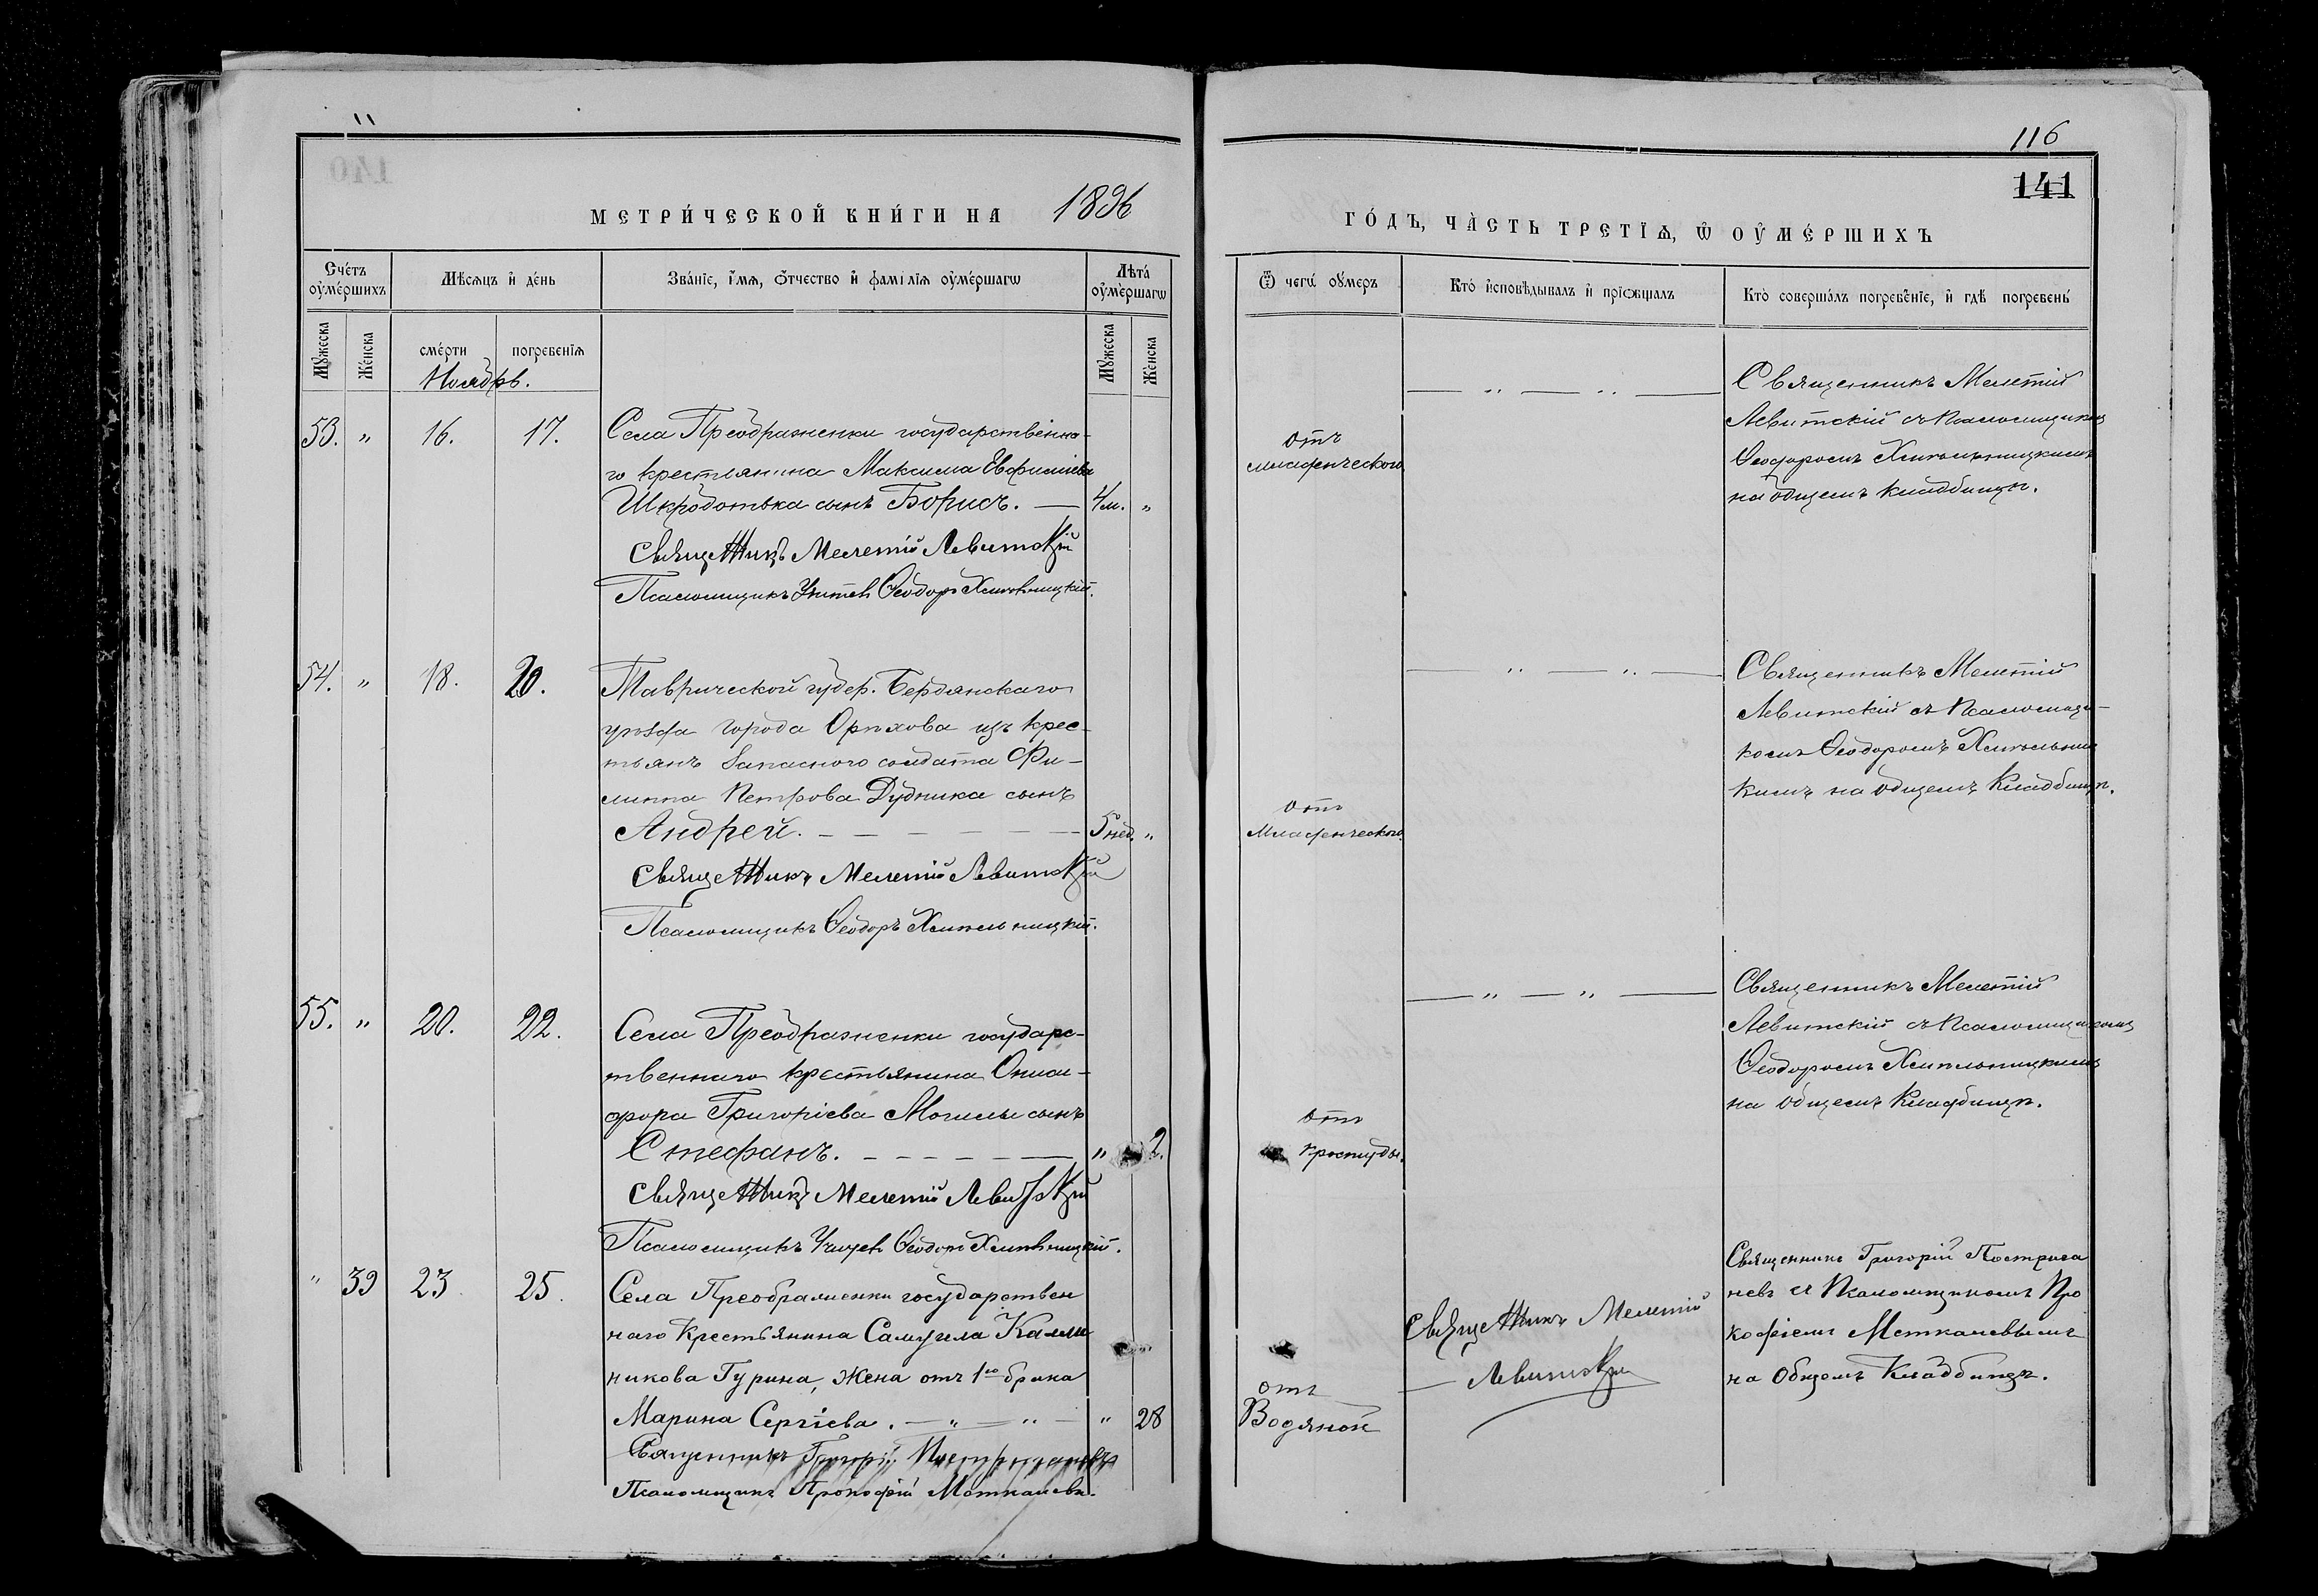 140
МЕТРИ́ЧЕСКОЙ КНИ́ГИ НА 1896
Сче́тъ оумершихъ
Мѣсяцъ и де́нь
Зва́нїе, и҆́мя, ѻ҆́тчество и҆ фамилїя оумершагѡ
Лѣта̀ оумершагѡ
Мꙋжеска
Женска
сме́рти
погребенїя
Мꙋжеска
Женска
Ноябрь.
53. " 16. 17. Села Преображенки государственна-
го крестьянина Максима Евфиміева
Шкроботька сынъ Борисъ. — 4 м. "
Священникъ Мелетій Левитскій
Псаломщикъ Учитель Ѳеодоръ Хмельницкій.
54. " 18. 20. Таврической губер. Бердянскаго
уѣзда города Орѣхова изъ крес-
тьянъ Запасного солдата Фи-
липпа Петрова Дудника сынъ
Андрей. — 5 нед. "
Священникъ Мелетій Левитскій
Псаломщикъ Ѳеодоръ Хмельницкій.
55. " 20. 22. Села Преображенки государс-
твеннаго крестьянина Ониси-
фора Григоріева Могилы сынъ
Стефанъ. — " 2.
Священникъ Мелетій Левитскій
Псаломщикъ Учитель Ѳеодоръ Хмельницкій.
" 39 23 25. Села Преображенки государствен
наго Крестьянина Самуила Калли
никова Гурина, жена отъ 1го брака
Марина Сергіева. — " — " — " 28
Священникъ Григорій
Псаломщикъ Прокофій
116
141
ГО́ДЪ, ЧА̀СТЬ ТРЕТЇѦ, Ѡ ОУМЕ́РШИХЪ
Ѿ чегѡ̀ оумеръ
Кто̀ исповѣ́дывалъ и҆ прїобщалъ
Кто̀ соверша́лъ погребе́нїе, и҆ гдѣ̀ погребены̀
отъ
младенческаго
— " — " —
Священникъ Мелетій
Левитскій съ Псаломщикомъ
Ѳеодоромъ Хмельницкимъ
на общемъ кладбищѣ.
отъ
Младенческаго.
— " — " —
Священникъ Мелетій
Левитскій съ Псаломщи-
комъ Ѳеодоромъ Хмельниц
кимъ на общемъ Кладбищѣ.
отъ
простуды.
— " — " —
Священникъ Мелетій
Левитскій съ Псаломщикомъ
Ѳеодоромъ Хмельницкимъ
на общемъ Кладбищѣ.
отъ
Водяной
Священникъ Мелетій
Левитскій
Священникъ Григорій Пострига
невъ съ Псаломщикомъ Про
кофіемъ
на Общемъ Кладбищѣ.